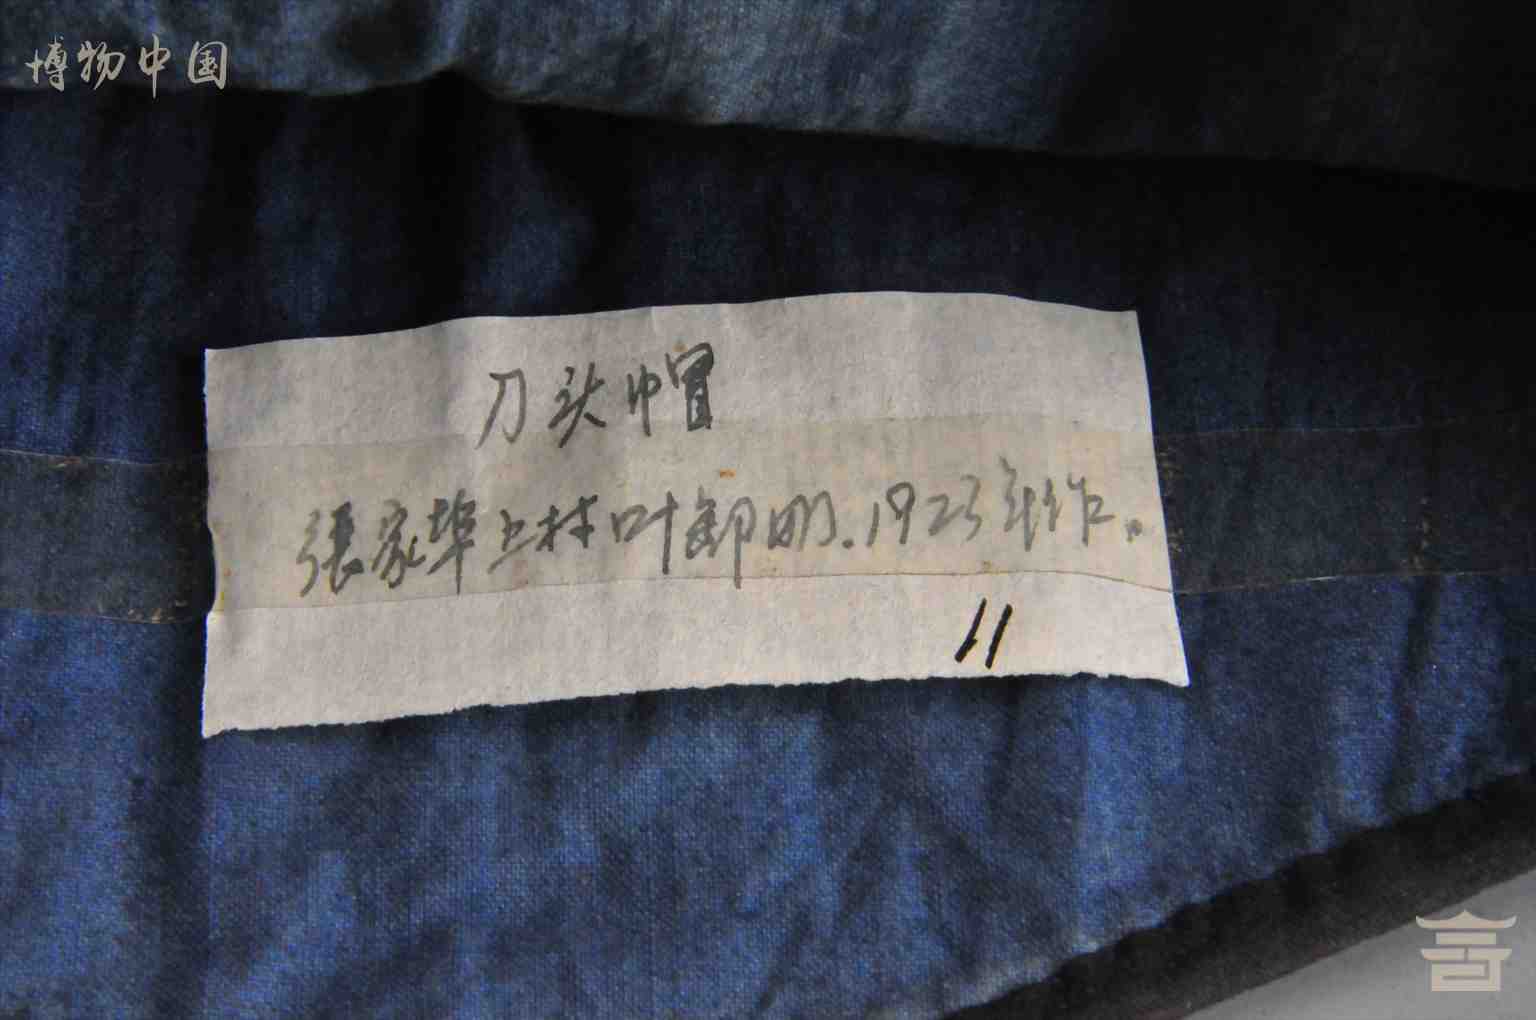 博物中国
刀头帽
張家埠上村叶卸明.1923年作。
11